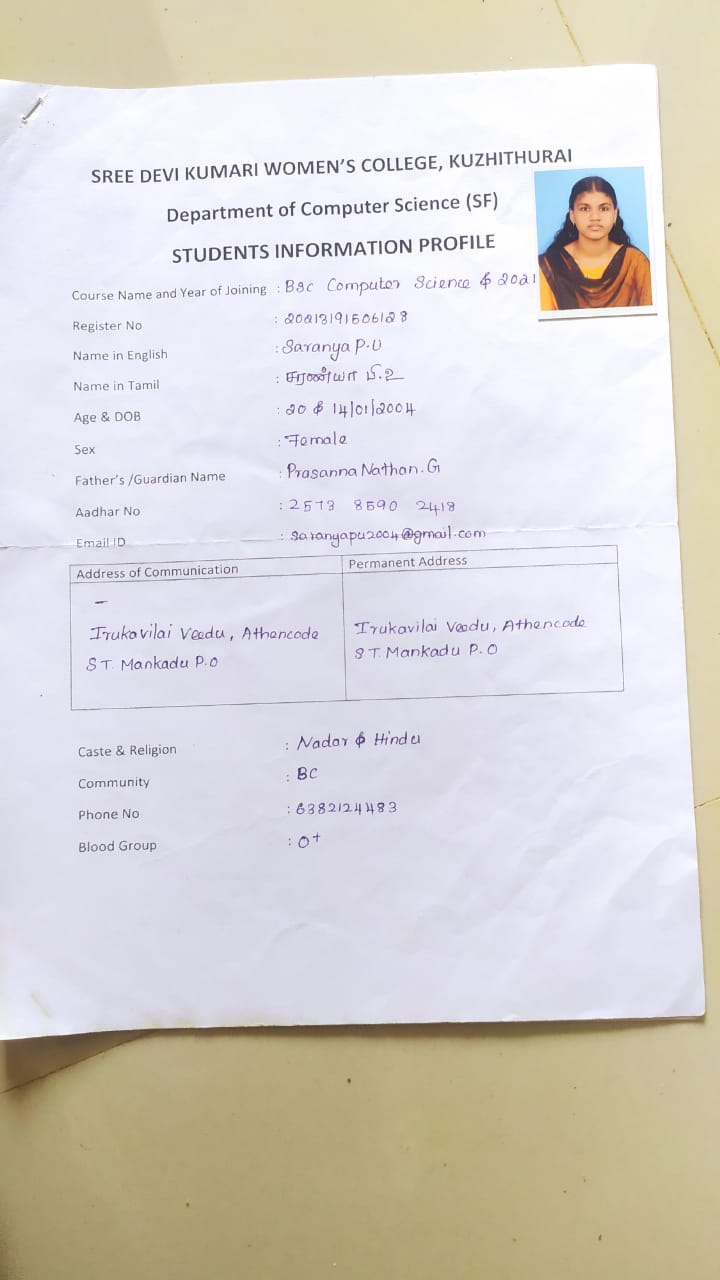 SREE DEVI KUMARI WOMEN'S COLLEGE, KUZHITHURAI
Department of Computer Science (SF)
STUDENTS INFORMATION PROFILE
Course Name and Year of Joining : BSc Computer Science & 2021
Register No : 20213191506128
Name in English : Saranya P.U
Name in Tamil : சரண்யா பி.உ
Age & DOB : 20 & 14/01/2004
Sex : Female
Father's /Guardian Name : Prasanna Nathan.G
Aadhar No : 2573 8590 2418
Email ID : saranyapu2004@gmail.com
Address of Communication Permanent Address
–
Irukavilai Veedu, Athencode Irukavilai Veedu, Athencode
ST. Mankadu P.O ST. Mankadu P.O
Caste & Religion : Nadar & Hindu
Community : BC
Phone No : 6382124483
Blood Group : O+